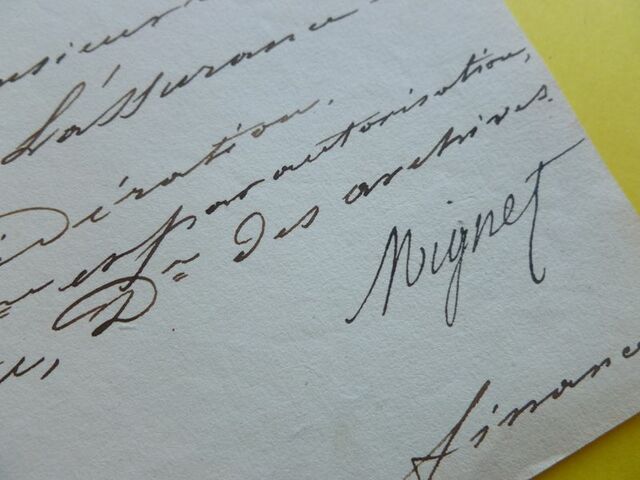 L'assurance
dération.
et par autorisation,
Dr des archives
Mignet
finance